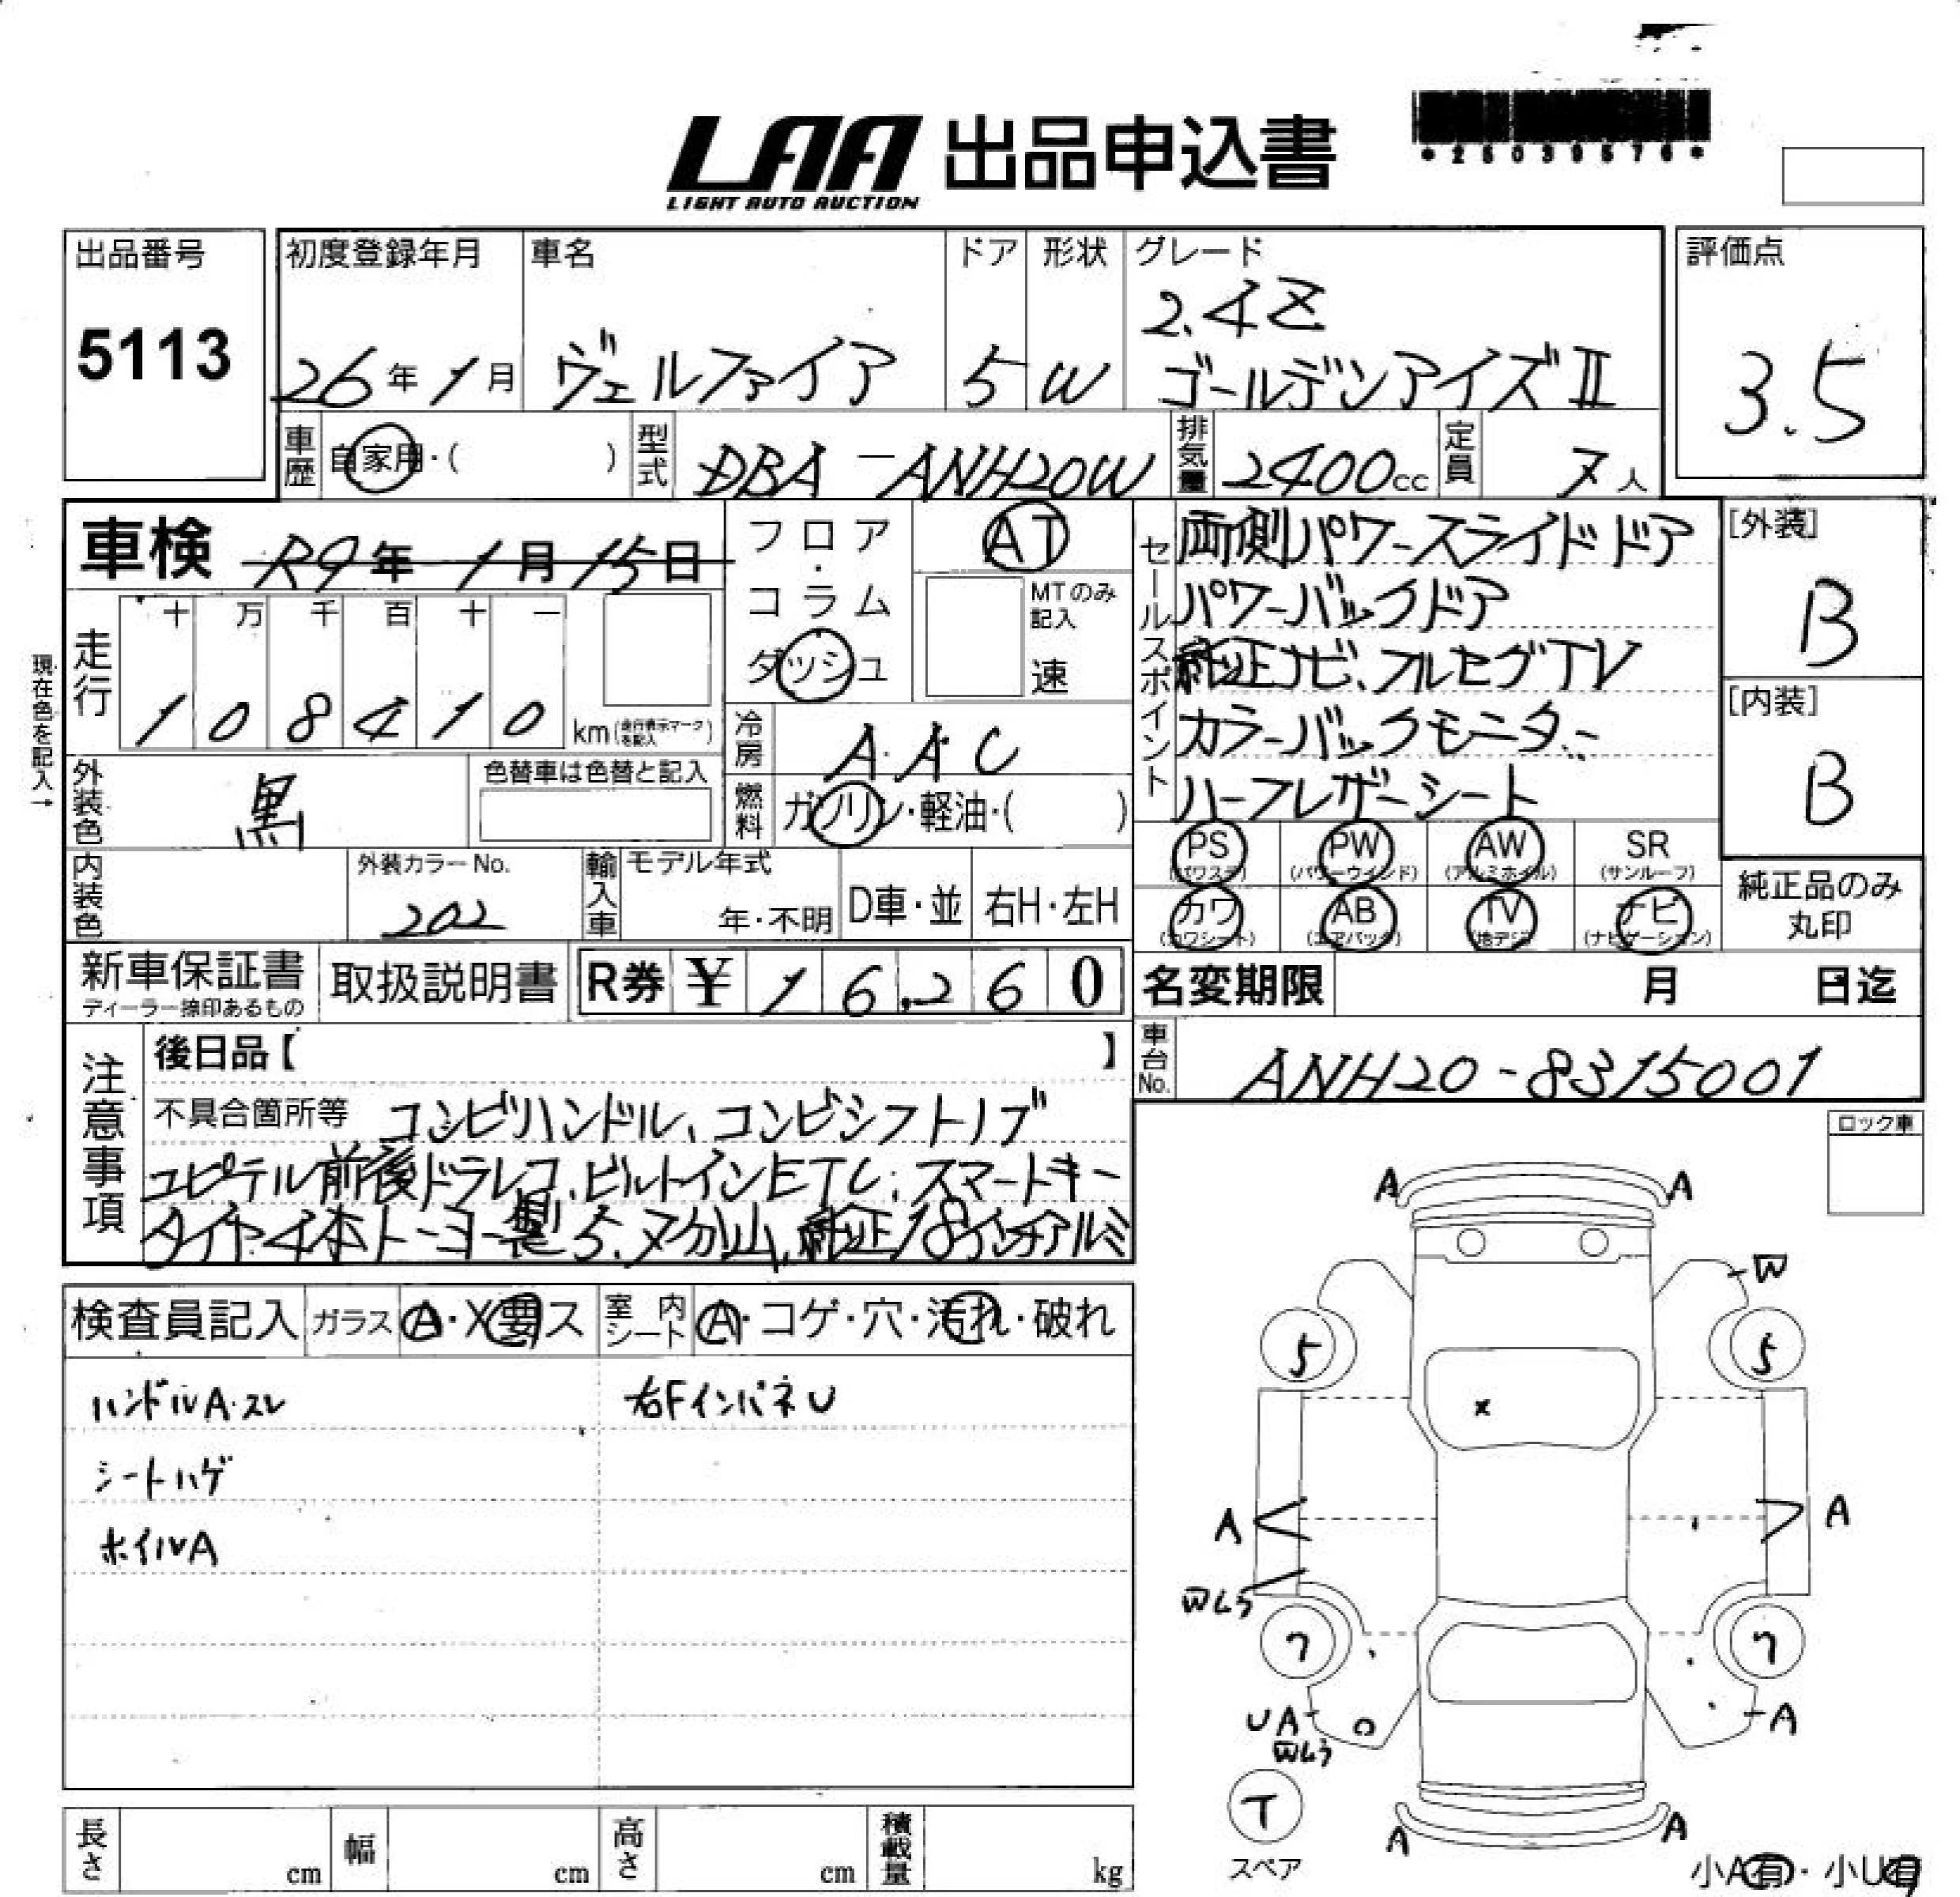 LAA 出品申込書
LIGHT AUTO AUCTION
*25039576*
出品番号
5113
初度登録年月
26年1月
車名
ヴェルファイア
ドア
5
形状
W
グレード
2.4Z
ゴールデンアイズⅡ
評価点
3.5
車歴
自家用・( )
型式
DBA-ANH20W
排気量
2400cc
定員
7人
車検 R9年1月15日
フロア・コラム
ダッシュ
AT
MTのみ記入
速
走行
十 万 千 百 十 一
1 0 8 4 1 0 km(走行表示マークを記入)
現在色を記入→
冷房
A.A.C
燃料
ガソリン・軽油・( )
外装色
黒
色替車は色替と記入
内装色
外装カラーNo.
202
輸入車
モデル年式
年・不明
D車・並
右H・左H
セールスポイント
両側パワースライドドア
パワーバックドア
純正ナビ、フルセグTV
カラーバックモニター
ハーフレザーシート
[外装]
B
[内装]
B
PS (パワステ)
PW (パワーウインド)
AW (アルミホイル)
SR (サンルーフ)
カワ (カワシート)
AB (エアバック)
TV (地デジ)
ナビ (ナビゲーション)
純正品のみ
丸印
新車保証書
ディーラー捺印あるもの
取扱説明書
R券 ¥ 16,260
名変期限 月 日迄
車台No.
ANH20-8315001
注意事項
後日品【 】
不具合箇所等 コンビハンドル、コンビシフトノブ
ユピテル前後ドラレコ、ビルトインETC、スマートキー
タイヤ4本トーヨー製5.7分山、純正18インチアルミ
検査員記入
ガラス A・X要ス
室内シート A・コゲ・穴・汚れ・破れ
ハンドルA・スレ
右FインパネU
シートハゲ
ホイルA
ロック車
A A
W
5 5
X
A A
Wムラ
7 7
UA A
Wムラ
T
スペア
A A
小A有・小U有
長さ cm
幅 cm
高さ cm
積載量 kg